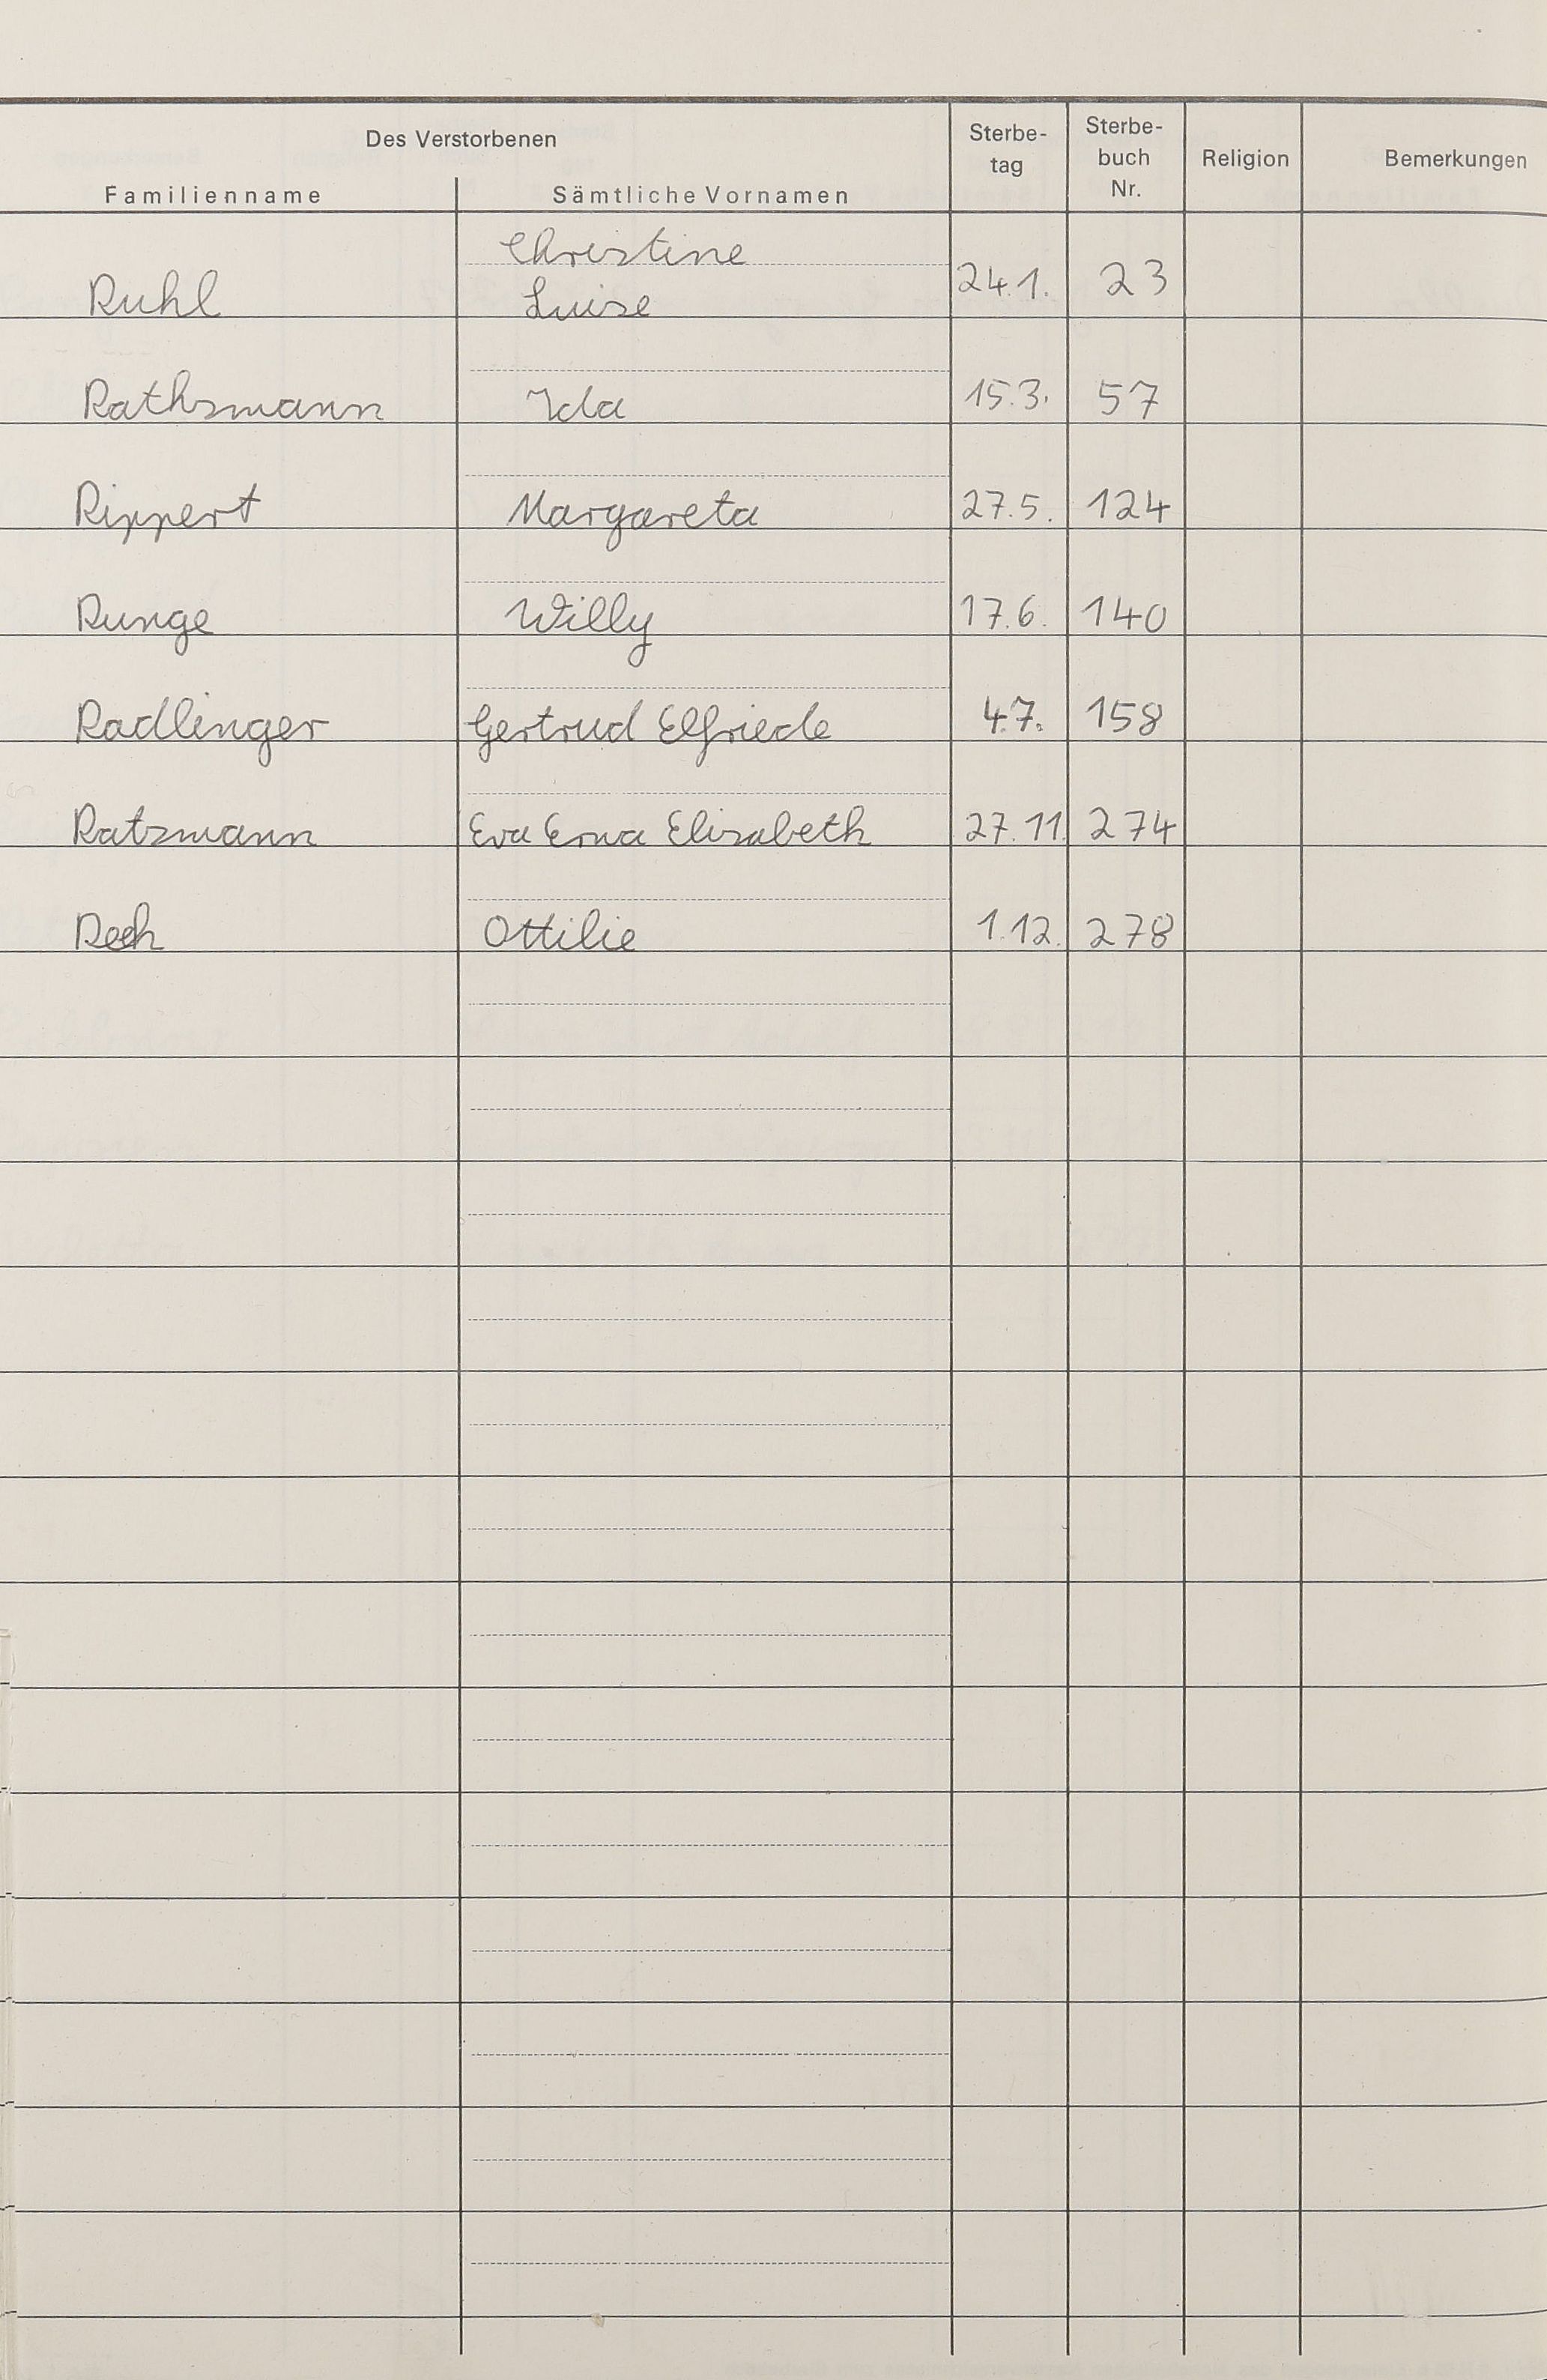 Des Verstorbenen
Familienname Sämtliche Vornamen Sterbe-
tag Sterbe-
buch
Nr. Religion Bemerkungen
Christine
Ruhl Luise 24.1. 23
Rathsmann Ida 15.3. 57
Rippert Margareta 27.5. 124
Runge Willy 17.6. 140
Radlinger Gertrud Elfriede 4.7. 158
Ratzmann Eva Erna Elisabeth 27.11. 274
Rech Ottilie 1.12. 278